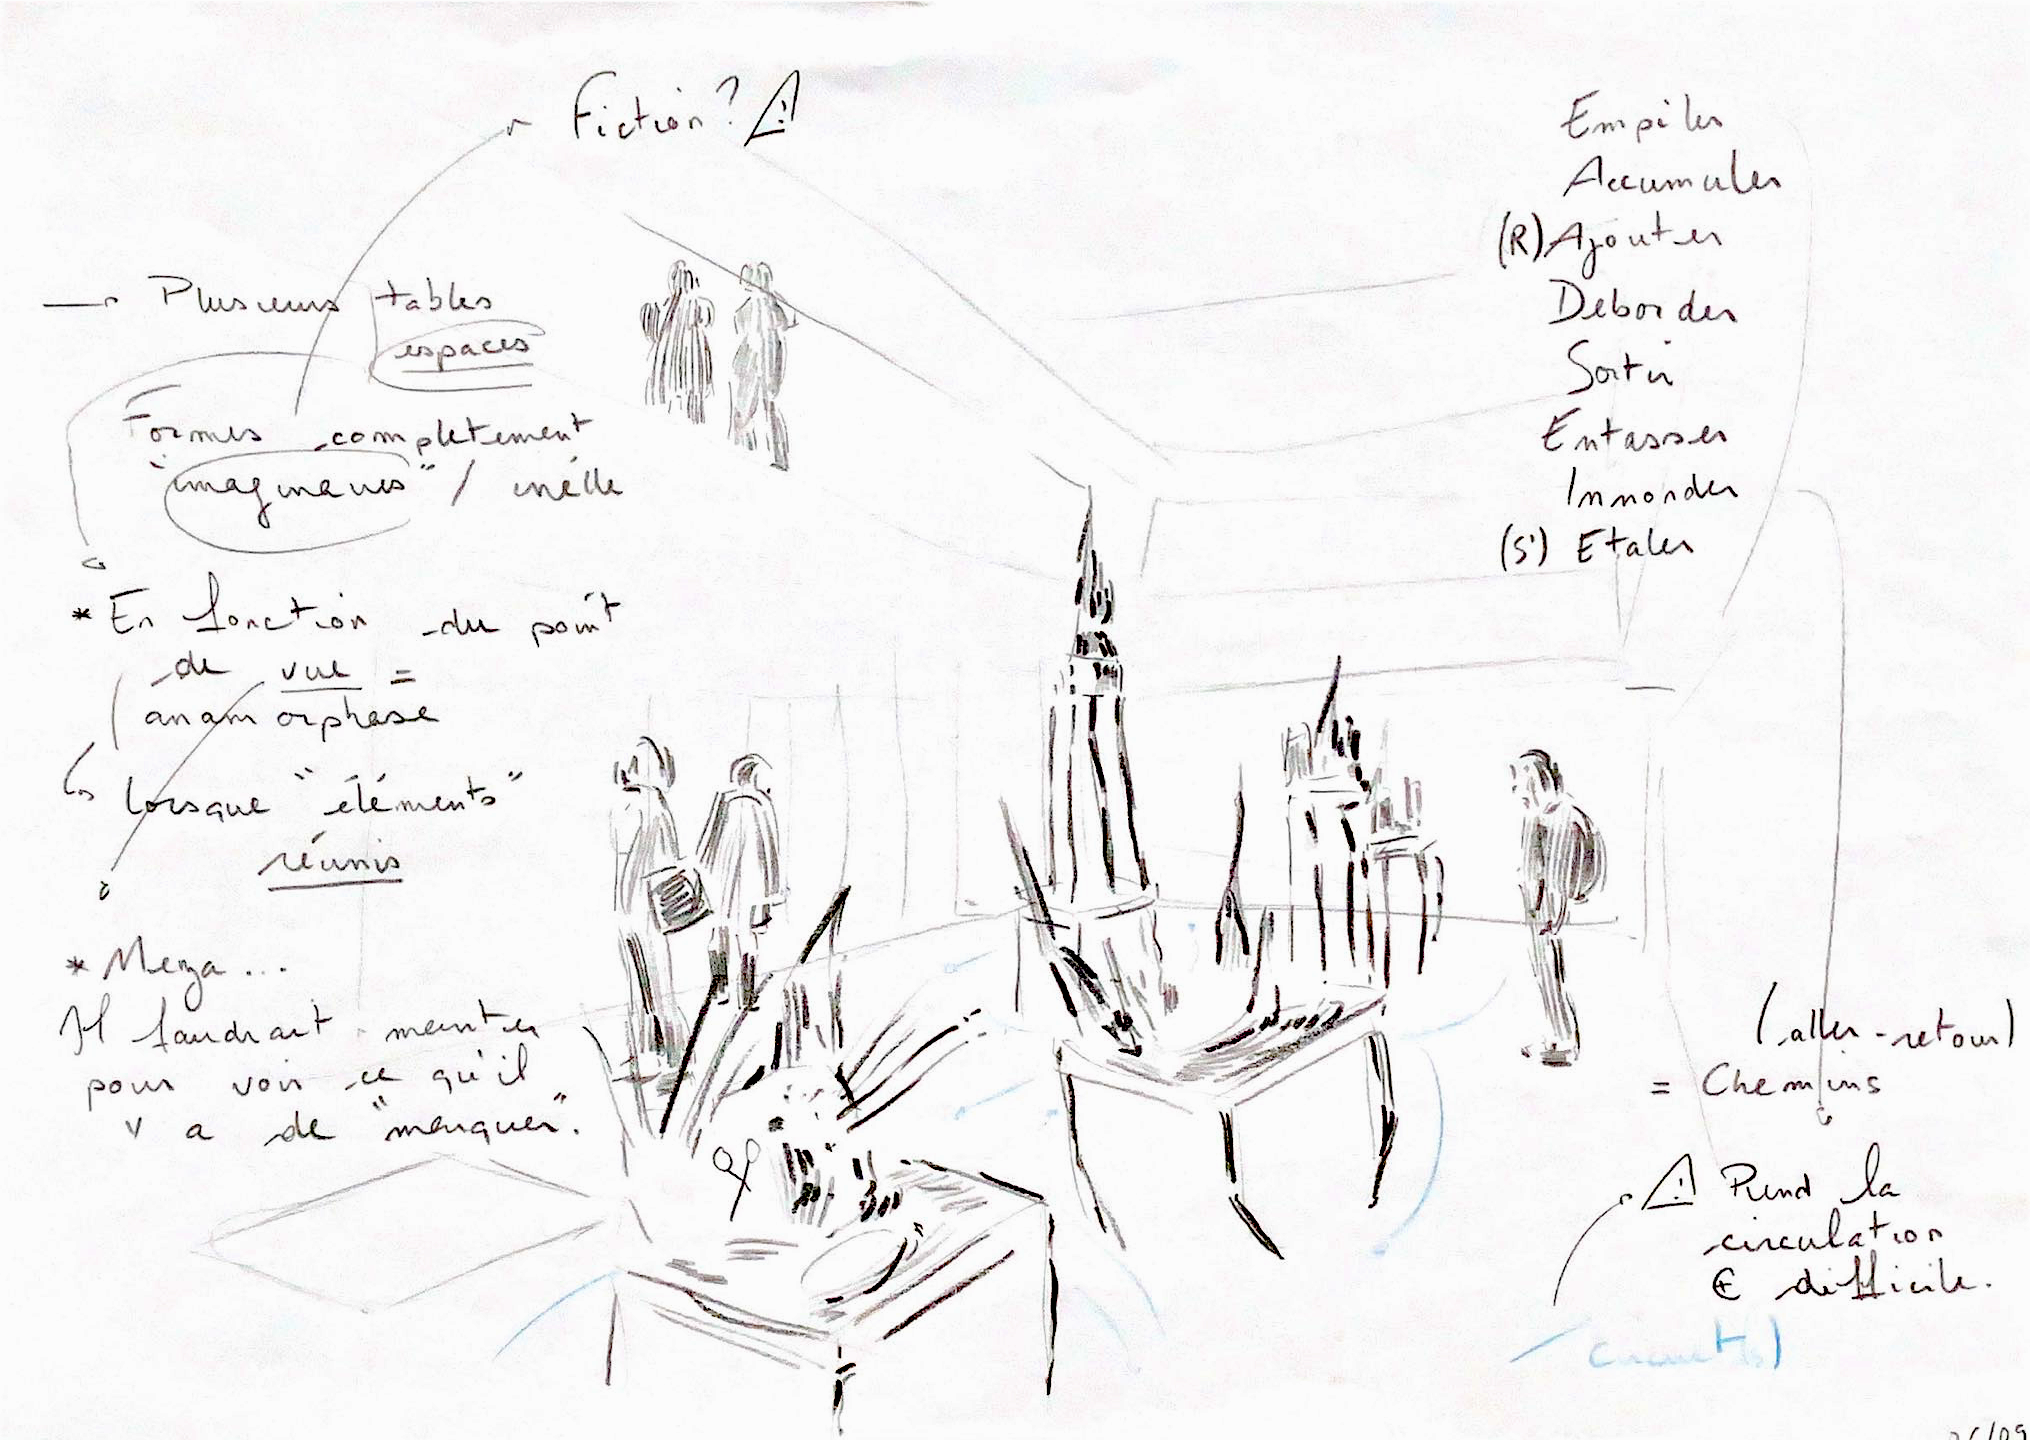 Fiction? ⚠
→ Plusieurs tables
espaces
Formes completement
"imaginaires" /
* En fonction du point
de vue =
anamorphose
↳ lorsque "éléments"
réunis
* Merza...
Il faudrait monter
pour voir ce qu'il
y a de "manquer".
Empiler
Accumuler
(R) Ajouter
Deborder
Sortir
Entasser
Innonder
(S') Etaler
(aller-retour)
= Chemins
⚠ Rend la
circulation
difficile.
Circuit(s)